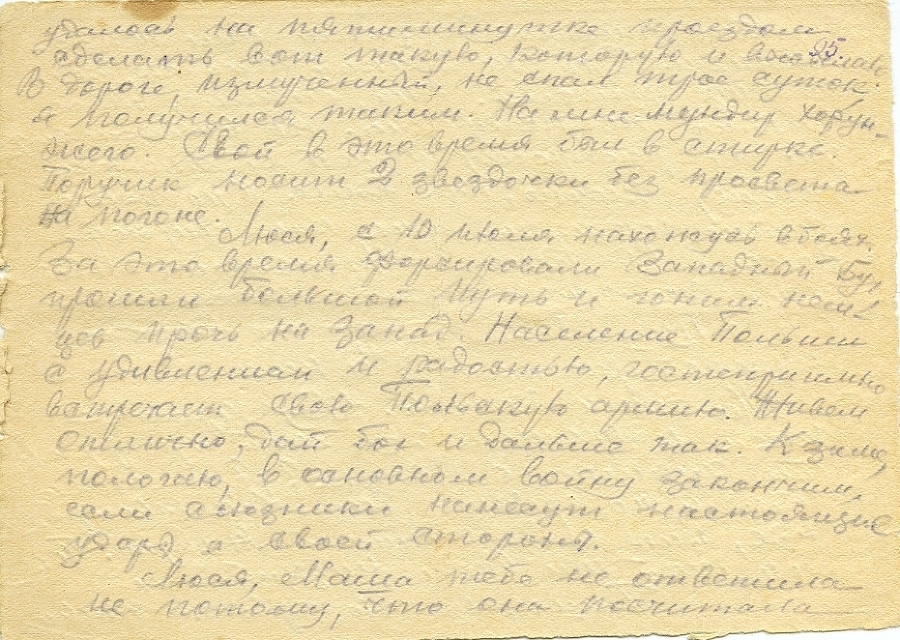 удалось на пятиминутке проездом
сделать вот такую, которую и высылаю
25
В дороге, измученный, не спал трое суток
и получился таким. На мне мундир хорун-
жего. Свой в это время был в стирке.
Поручик носит 2 звездочки без просвета
на погоне.
Люся, с 10 июля нахожусь в боях.
За это время форсировали Западный Буг,
прошли большой путь и гоним нем-
цев прочь на запад. Население Польши
с удивлением и радостью, гостеприимно
встречает свою Польскую армию. Живем
отлично, дай бог и дальше так. К зиме,
полагаю, в основном войну закончим,
если союзники нанесут настоящие
удары с своей стороны.
Люся, Маша тебе не ответила
не потому, что она посчитала